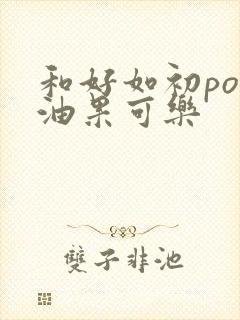 和好如初po
油果可樂
雙子非池